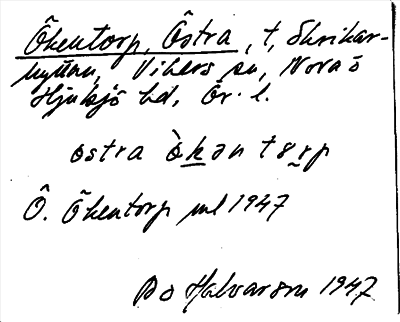 Ökentorp, Östra, t, Skrikar-
hyttan, Vikers sn, Nora o
Hjulsjö bd, Ör. l.
ostra òkən tɜrp
Ö. Ökentorp ml 1947
Bo Halvarson 1947